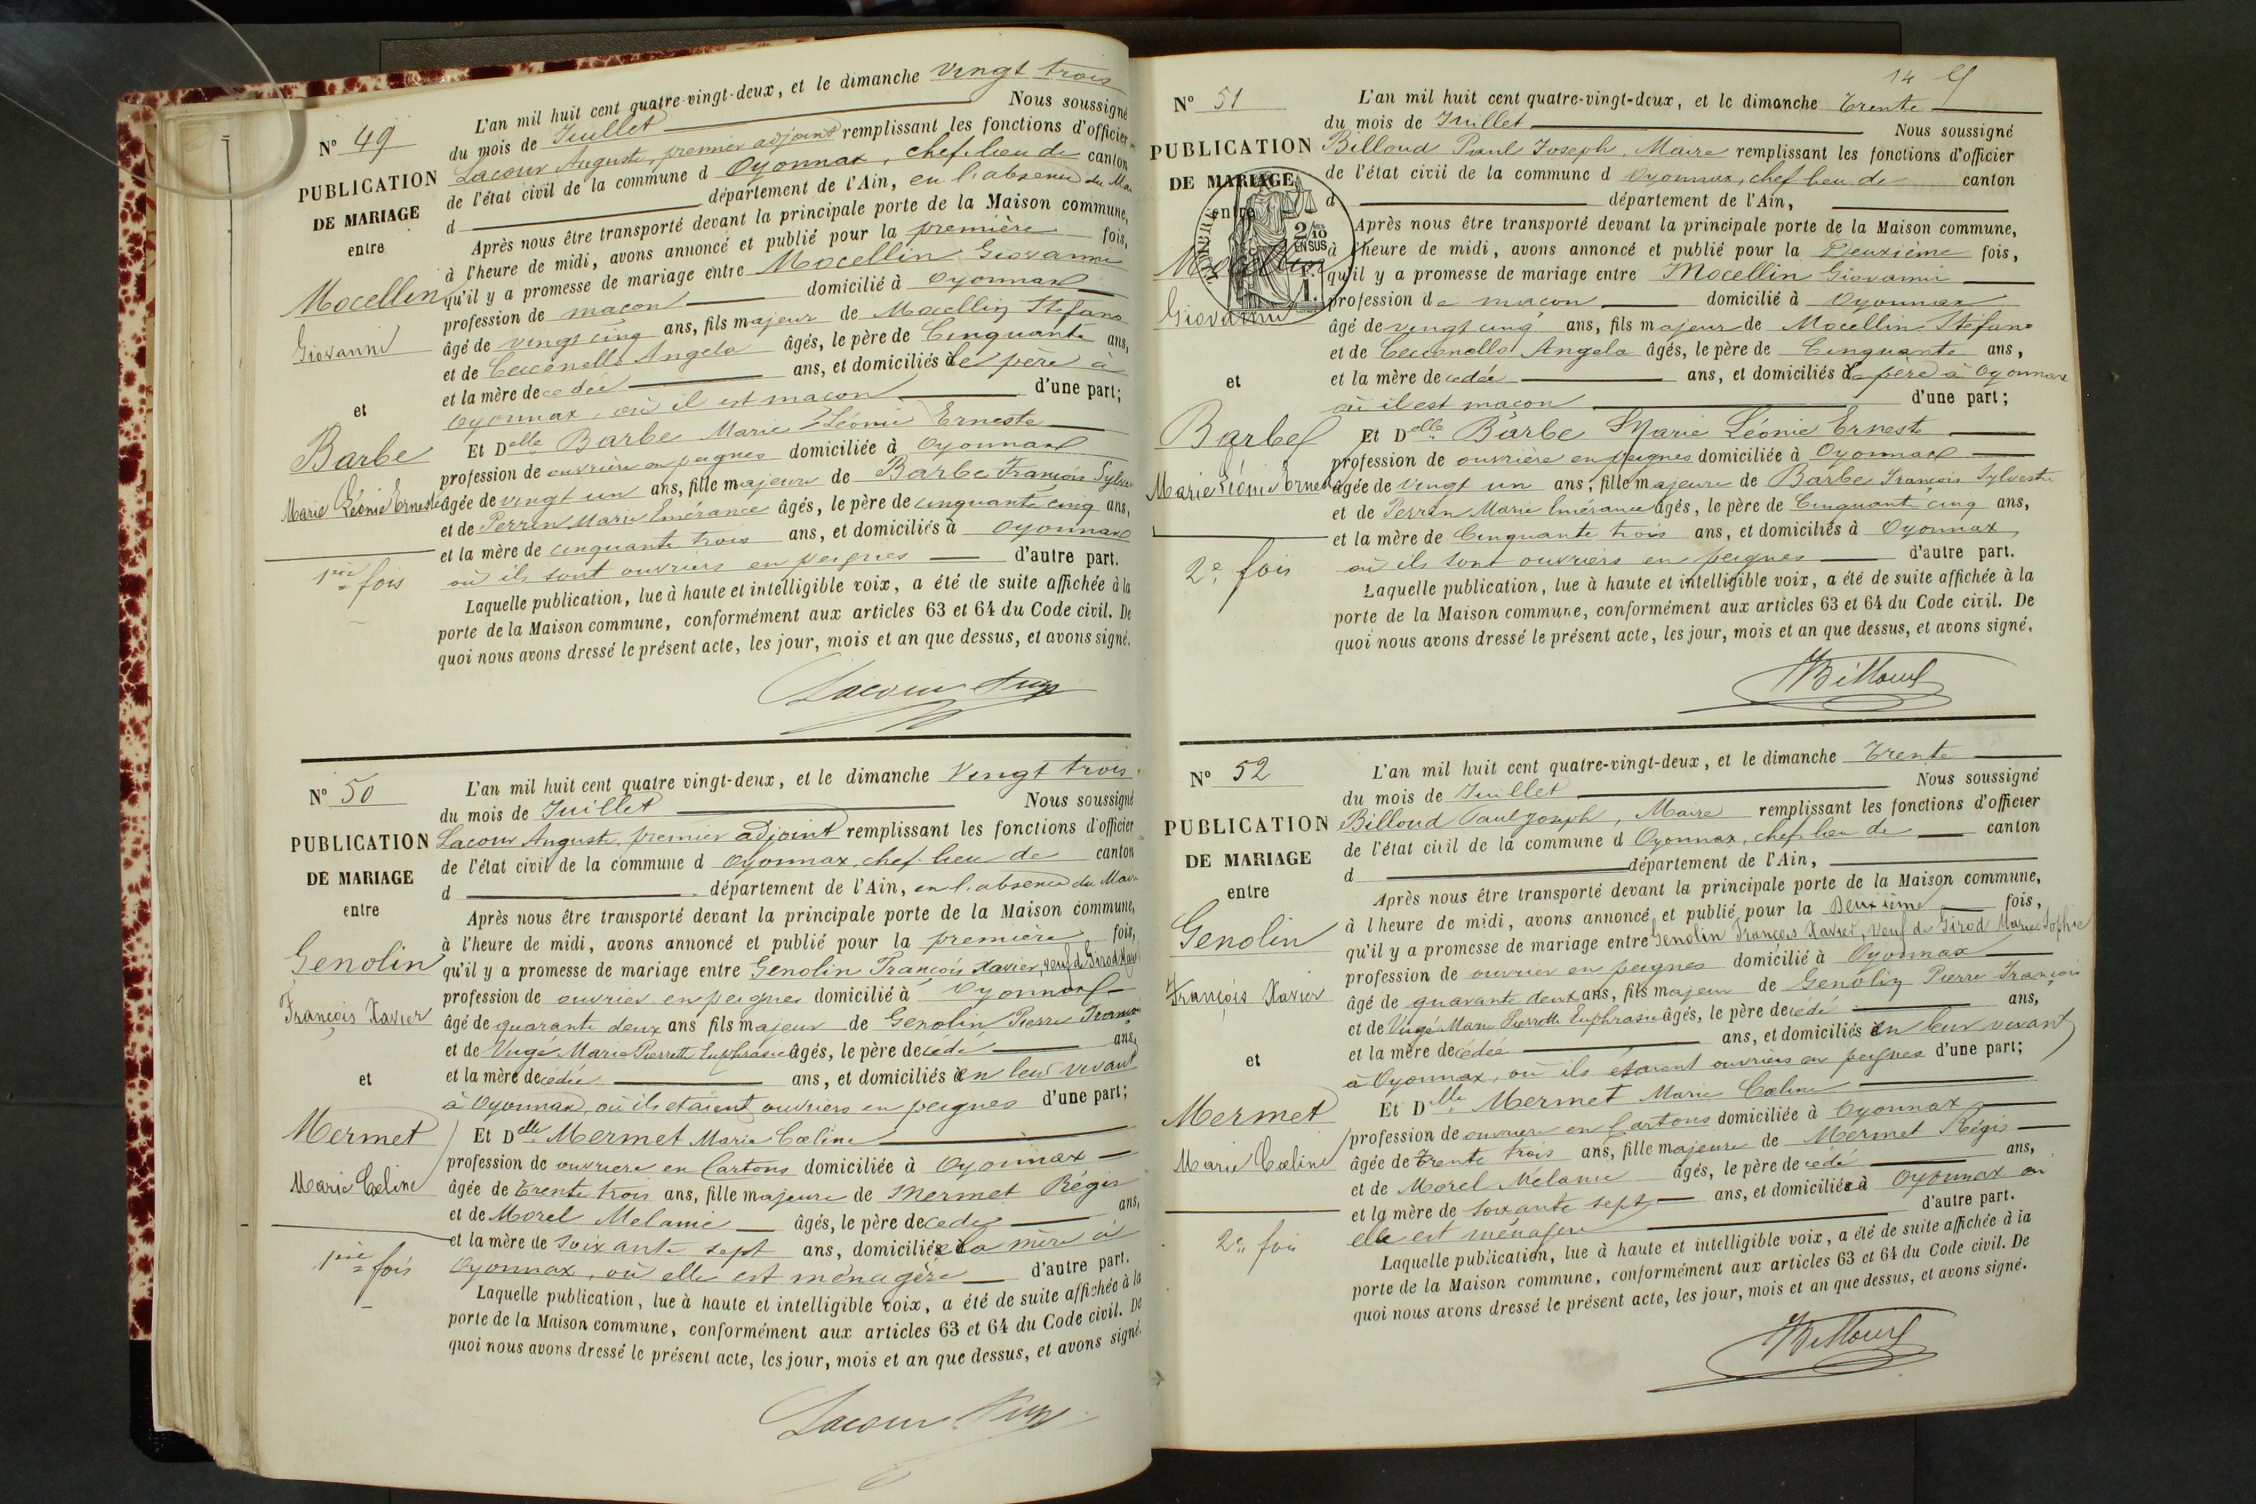 N° 49
PUBLICATION
DE MARIAGE
entre
Mocellin
Giovanni
et
Barbe
Marie Léonie Erneste
1ère fois
L'an mil huit cent quatre-vingt-deux, et le dimanche vingt trois
du mois de Juillet Nous soussigné
Lacour Auguste, premier adjoint remplissant les fonctions d'officier
de l'état civil de la commune d Oyonnax, chef-lieu de canton
d département de l'Ain, en l'absence du Mai
Après nous être transporté devant la principale porte de la Maison commune,
à l'heure de midi, avons annoncé et publié pour la première fois,
qu'il y a promesse de mariage entre Mocellin Giovanni
profession de maçon domicilié à Oyonnax
âgé de vingt cinq ans, fils majeur de Mocellin Stefano
et de Ceccenello Angela âgés, le père de Cinquante ans,
et la mère decedée ans, et domiciliés à le père à
Oyonnax, où il est maçon d'une part;
Et Delle Barbe Marie Léonie Erneste
profession de ouvrière en peignes domiciliée à Oyonnax
âgée de vingt un ans, fille majeure de Barbe François Sylves
et de Perrin Marie Emérance âgés, le père de cinquante cinq ans,
et la mère de cinquante trois ans, et domiciliés à Oyonnax
où ils sont ouvriers en peignes d'autre part.
Laquelle publication, lue à haute et intelligible voix, a été de suite affichée à la
porte de la Maison commune, conformément aux articles 63 et 64 du Code civil. De
quoi nous avons dressé le présent acte, les jour, mois et an que dessus, et avons signé.
Lacour Aug
N° 50
PUBLICATION
DE MARIAGE
entre
Genolin
François Xavier
et
Mermet
Marie Cœline
1ère fois
L'an mil huit cent quatre vingt-deux, et le dimanche Vingt trois
du mois de Juillet Nous soussigné
Lacour Auguste, premier adjoint remplissant les fonctions d'officier
de l'état civil de la commune d Oyonnax, chef-lieu de canton
d département de l'Ain, en l'absence du Mai
Après nous être transporté devant la principale porte de la Maison commune,
à l'heure de midi, avons annoncé et publié pour la première fois,
qu'il y a promesse de mariage entre Genolin François Xavier, veuf de Girod
profession de ouvrier en peignes domicilié à Oyonnax
âgé de quarante deux ans fils majeur de Genolin Pierre François
et de Vugé Marie Pierrette Euphrasie âgés, le père decédé ans,
et la mère decédée ans, et domiciliés à en leur vivant
à Oyonnax, où ils étaient ouvriers en peignes d'une part;
Et Delle Mermet Marie Cœline
profession de ouvrière en Cartons domiciliée à Oyonnax
âgée de trente trois ans, fille majeure de Mermet Régis
et de Morel Melanie âgés, le père decedé ans,
et la mère de soixante sept ans, domiciliée la mère à
Oyonnax, où elle est ménagère d'autre part.
Laquelle publication, lue à haute et intelligible voix, a été de suite affichée à la
porte de la Maison commune, conformément aux articles 63 et 64 du Code civil. De
quoi nous avons dressé le présent acte, les jour, mois et an que dessus, et avons signé.
Lacour Aug
14
N° 51
PUBLICATION
DE MARIAGE
entre
2/10
EN SUS
1 F.
Mocellin
Giovanni
et
Barbe
Marie Léonie Ernest
2e fois
L'an mil huit cent quatre-vingt-deux, et le dimanche Trente
du mois de Juillet Nous soussigné
Billoud Paul Joseph, Maire remplissant les fonctions d'officier
de l'état civil de la commune d Oyonnax, chef lieu de canton
d département de l'Ain,
Après nous être transporté devant la principale porte de la Maison commune,
à l'heure de midi, avons annoncé et publié pour la Deuxième fois,
qu'il y a promesse de mariage entre Mocellin Giovanni
profession de maçon domicilié à Oyonnax
âgé de vingt cinq ans, fils majeur de Mocellin Stéfano
et de Ceccenello Angela âgés, le père de Cinquante ans,
et la mère decedée ans, et domiciliés à le père à Oyonnax
où il est maçon d'une part;
Et Delle Barbe Marie Léonie Erneste
profession de ouvrière en peignes domiciliée à Oyonnax
âgée de vingt un ans, fille majeure de Barbe François Sylvestre
et de Perrin Marie Emérance âgés, le père de Cinquante cinq ans,
et la mère de Cinquante trois ans, et domiciliés à Oyonnax
où ils sont ouvriers en peignes d'autre part.
Laquelle publication, lue à haute et intelligible voix, a été de suite affichée à la
porte de la Maison commune, conformément aux articles 63 et 64 du Code civil. De
quoi nous avons dressé le présent acte, les jour, mois et an que dessus, et avons signé.
Billoud
N° 52
PUBLICATION
DE MARIAGE
entre
Genolin
François Xavier
et
Mermet
Marie Cœline
2e fois
L'an mil huit cent quatre-vingt-deux, et le dimanche Trente
du mois de Juillet Nous soussigné
Billoud Paul Joseph, Maire remplissant les fonctions d'officier
de l'état civil de la commune d Oyonnax, chef-lieu de canton
d département de l'Ain,
Après nous être transporté devant la principale porte de la Maison commune,
à l'heure de midi, avons annoncé et publié pour la Deuxième fois,
qu'il y a promesse de mariage entre Genolin François Xavier, veuf de Girod Marie Sophie
profession de ouvrier en peignes domicilié à Oyonnax
âgé de quarante deux ans, fils majeur de Genolin Pierre François
et de Vugé Marie Pierrette Euphrasie âgés, le père decédé ans,
et la mère decédée ans, et domiciliés à en leur vivant
à Oyonnax, où ils étaient ouvriers en peignes d'une part;
Et Delle Mermet Marie Cœline
profession de ouvrière en Cartons domiciliée à Oyonnax
âgée de Trente trois ans, fille majeure de Mermet Régis
et de Morel Mélanie âgés, le père decédé ans,
et la mère de soixante sept ans, et domiciliée à Oyonnax où
elle est ménagère d'autre part.
Laquelle publication, lue à haute et intelligible voix, a été de suite affichée à la
porte de la Maison commune, conformément aux articles 63 et 64 du Code civil. De
quoi nous avons dressé le présent acte, les jour, mois et an que dessus, et avons signé.
Billoud